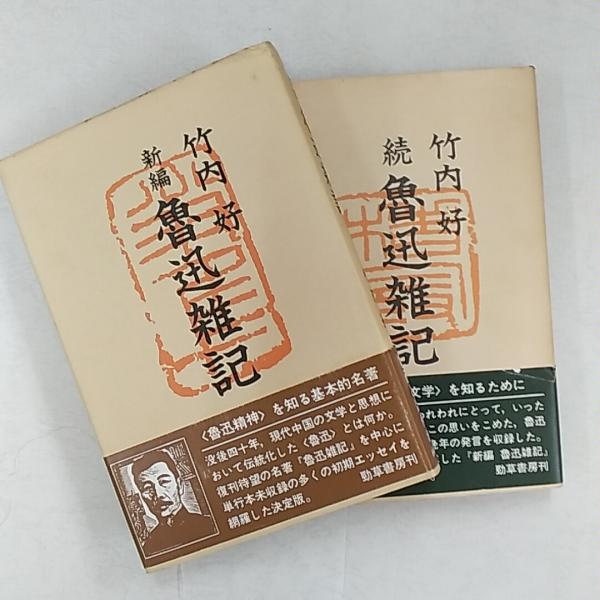 竹内 好
新編 魯迅雑記
〈魯迅精神〉を知る基本的名著
没後四十年。現代中国の文学と思想に
おいて伝統化した〈魯迅〉とは何か。
復刊待望の名著『魯迅雑記』を中心に
単行本未収録の多くの初期エッセイを
網羅した決定版。
勁草書房刊
竹内 好
続 魯迅雑記
文学〉を知るために
われわれにとって、いった
この思いをこめた、魯迅
年の発言を収録した。
した『新編 魯迅雑記』
勁草書房刊